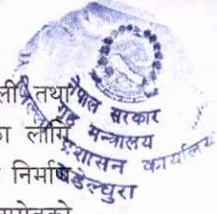 ली तथा
का लागि
निर्माण
नेपाल सरकार
गृह मन्त्रालय
प्रशासन कार्यालय
डडेल्धुरा